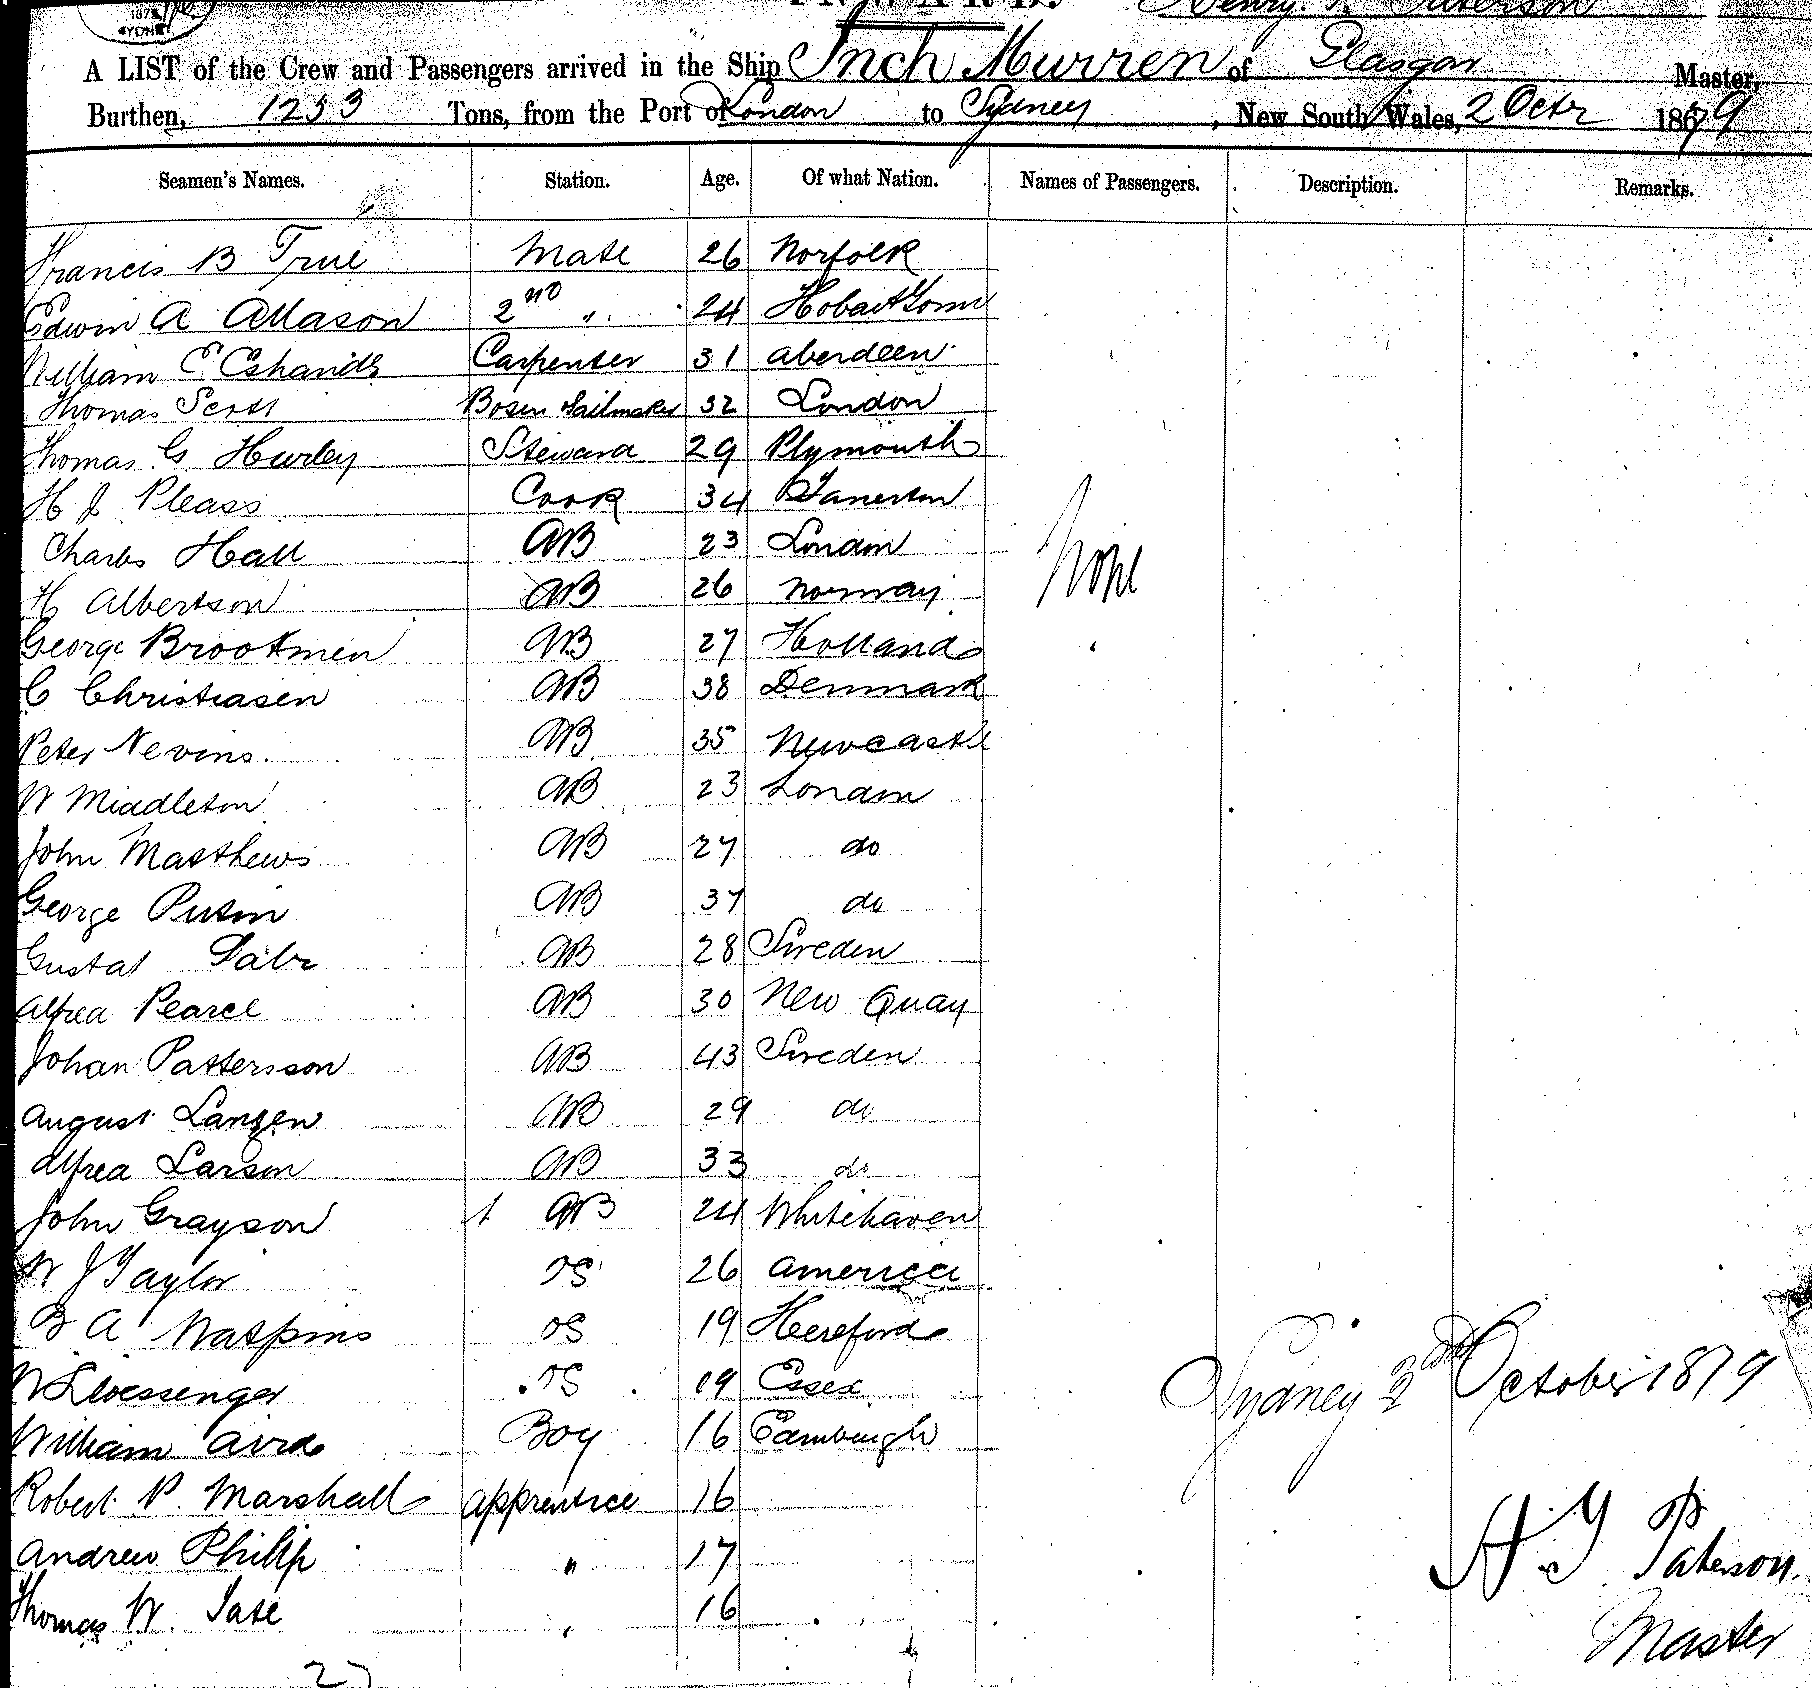 1879
SYDNEY
INWARD. Henry. Paterson
A LIST of the Crew and Passengers arrived in the Ship Inch Murren of Glasgow Master,
Burthen, 1233 Tons, from the Port of London to Sydney, New South Wales, 2 Octr 1879
Seamen's Names. Station. Age. Of what Nation. Names of Passengers. Description. Remarks.
Francis B True Mate 26 Norfolk
Edwin A Allason 2nd " 24 Hobart Town
William C Carpenter 31 Aberdeen
Thomas Scott Bosen Sailmaker 32 London
Thomas G Hurley Steward 29 Plymouth
H J Pleass Cook 34
Charles Hall AB 23 London
None
H Albertson AB 26 Norway
George Brootmen AB 27 Holland
C Christiasen AB 38 Denmark
Peter Nevins. AB 35 Newcastle
W Middleton AB 23 London
John Matthews AB 27 do
George AB 37 do
Gustaf AB 28 Sweden
Alfred Pearce AB 30 New Quay
Johan Pattersson AB 43 Sweden
August Langen AB 29 do
Alfred Larson AB 33 do
John Grayson AB 24 Whitehaven
W J Taylor OS 26 America
B A Watkins OS 19 Hereford
W OS 19 Essex
Sydney 2nd October 1879
William Aird Boy 16 Edinburgh
Robert P. Marshall Apprentice 16
Andrew Philip " 17
H Y Paterson.
Thomas W. Tate " 16
Master
27